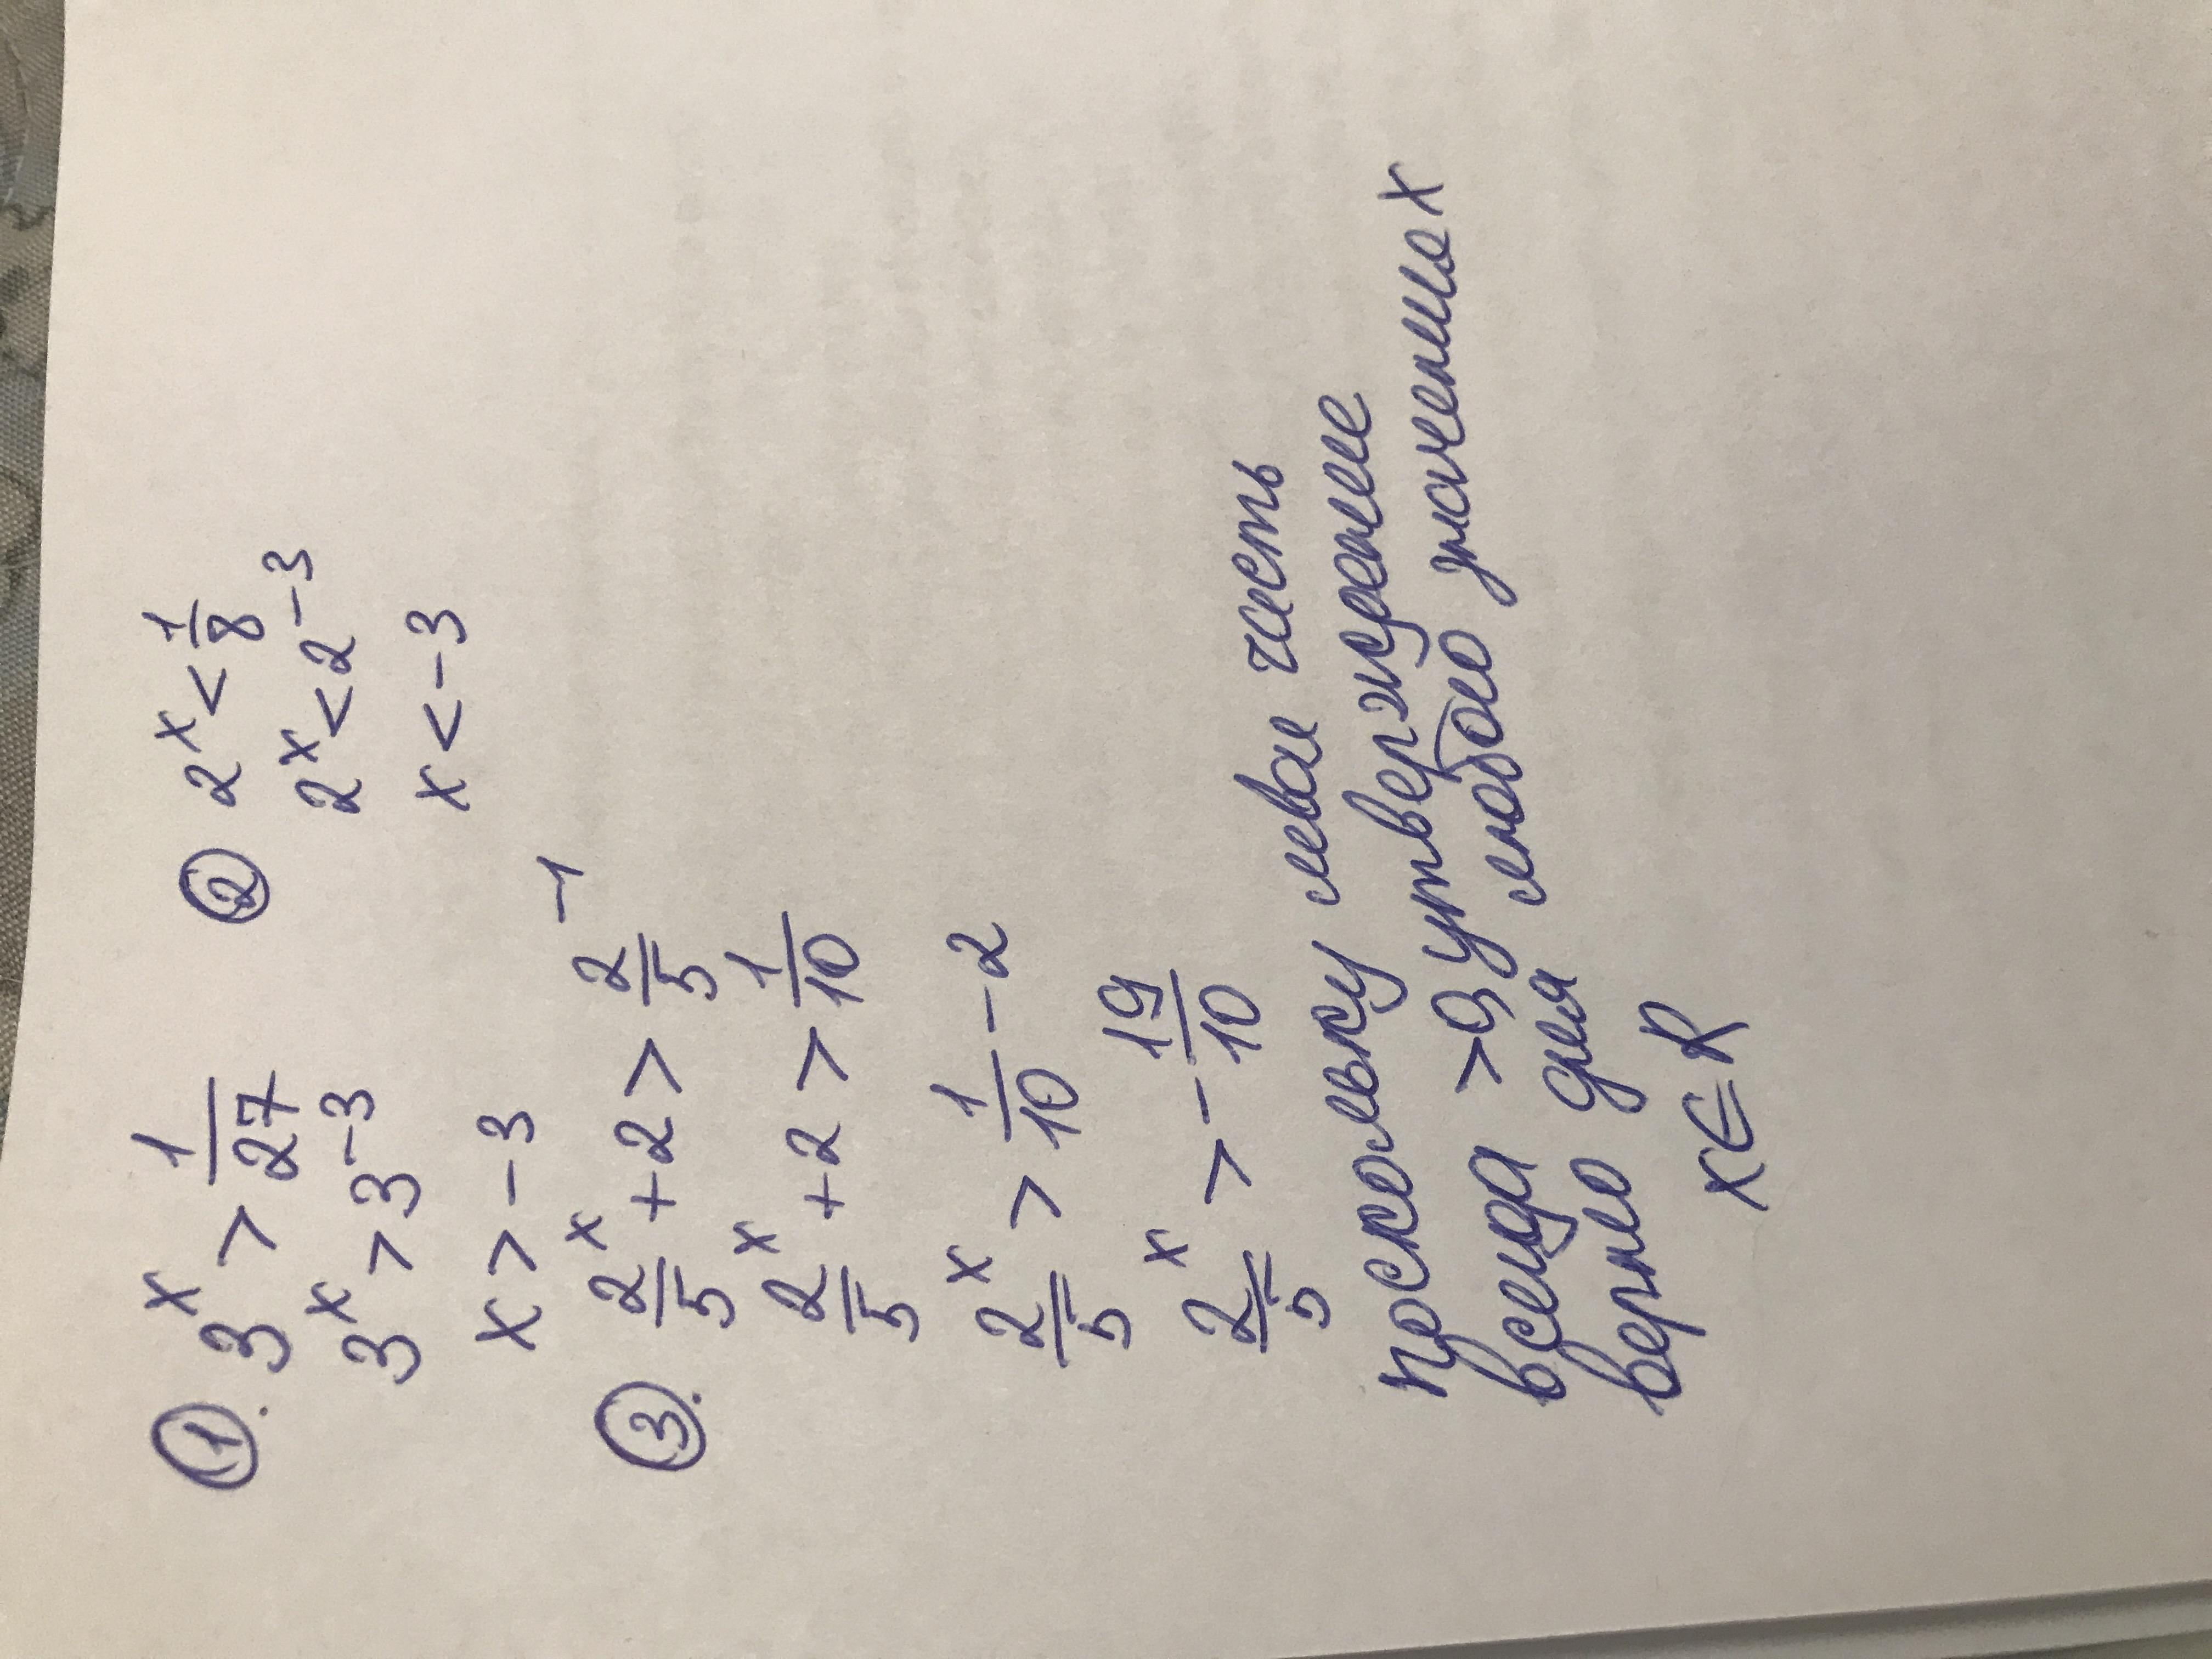 ①. 3ˣ > 1/27
3ˣ > 3⁻³
x > -3
② 2ˣ < 1/8
2ˣ < 2⁻³
x < -3
③. 2ˣ/5 + 2 > 2/5⁻¹
2ˣ/5 + 2 > 1/10
2ˣ/5 > 1/10 - 2
2ˣ/5 > - 19/10
поскольку левая часть
всегда >0, утверждение
верно для любого значения x
x∈R